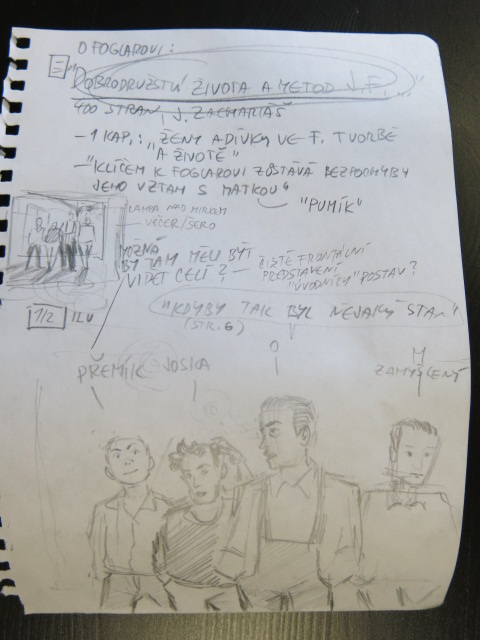 O FOGLAROVI:
"DOBRODRUŽSTVÍ ŽIVOTA A METOD J.F.."
400 STRAN, J. ZACHARIÁŠ
- 1 KAP.: "ŽENY A DÍVKY VE F. TVORBĚ
A ŽIVOTĚ"
- "KLÍČEM K FOGLAROVI ZŮSTÁVÁ BEZPOCHYBY
JEHO VZTAH S MATKOU"
"PUMÍK"
LAMPA NAD
VEČER/ŠERO
MOŽNÁ
BY TAM MĚLI BÝT
VIDĚT CELÍ?
- ČISTĚ FRONTÁLNÍ
PŘEDSTAVENÍ
"ÚVODNÍCH" POSTAV?
1/2 ILU
"KDYBY TAK BYL NĚJAKÝ STAN"
(STR. 6)
PŘEMÍK
JOSKA
O
M
ZAMYŠLENÝ